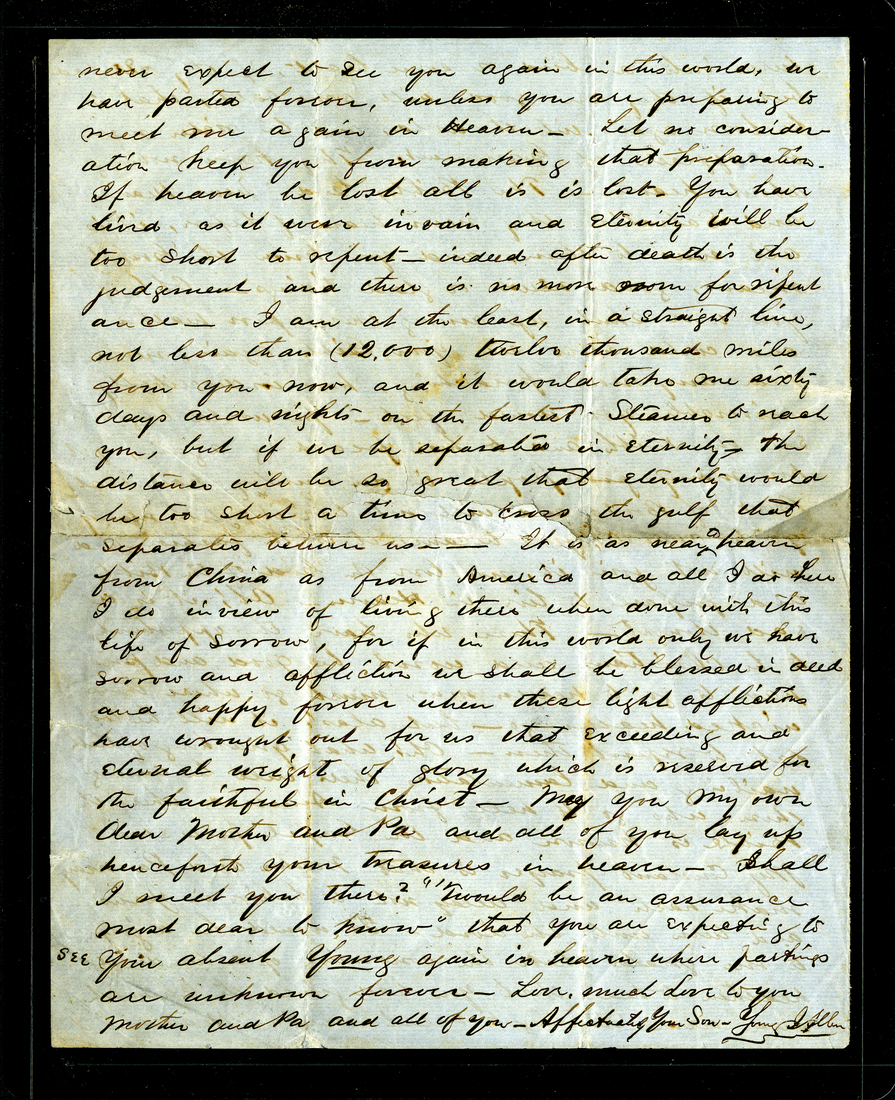 never expect to see you again in this world, we
have parted forever, unless you are preparing to
meet me again in Heaven — Let no consider-
ation keep you from making that preparation.
If heaven be lost all is is lost — You have
lived as it were in vain and Eternity will be
too short to repent — indeed after death is the
judgement and there is no more room for repent
ance — I am at the least, in a straight line,
not less than (12,000) twelve thousand miles
from you now, and it would take me sixty
days and nights on the fastest Steamer to reach
you, but if we be separated in Eternity — the
distance will be so great that Eternity would
be too short a time to cross the gulf that
separates between us — — It is as near to heaven
from China as from America and all I do here
I do in view of living there when done with this
life of sorrow, for if in this world only we have
sorrow and affliction we shall be blessed indeed
and happy forever when these light afflictions
have wrought out for us that exceeding and
eternal weight of glory which is reserved for
the faithful in Christ — May you my own
dear Mother and Pa and all of you lay up
henceforth your treasures in heaven — Shall
I meet you there? "'Twould be an assurance
most dear to know" that you are expecting to
see Your absent Young again in heaven where partings
are unknown forever — Love, much Love to you
Mother and Pa and all of you — Affectnately Your Son — Young J Allen